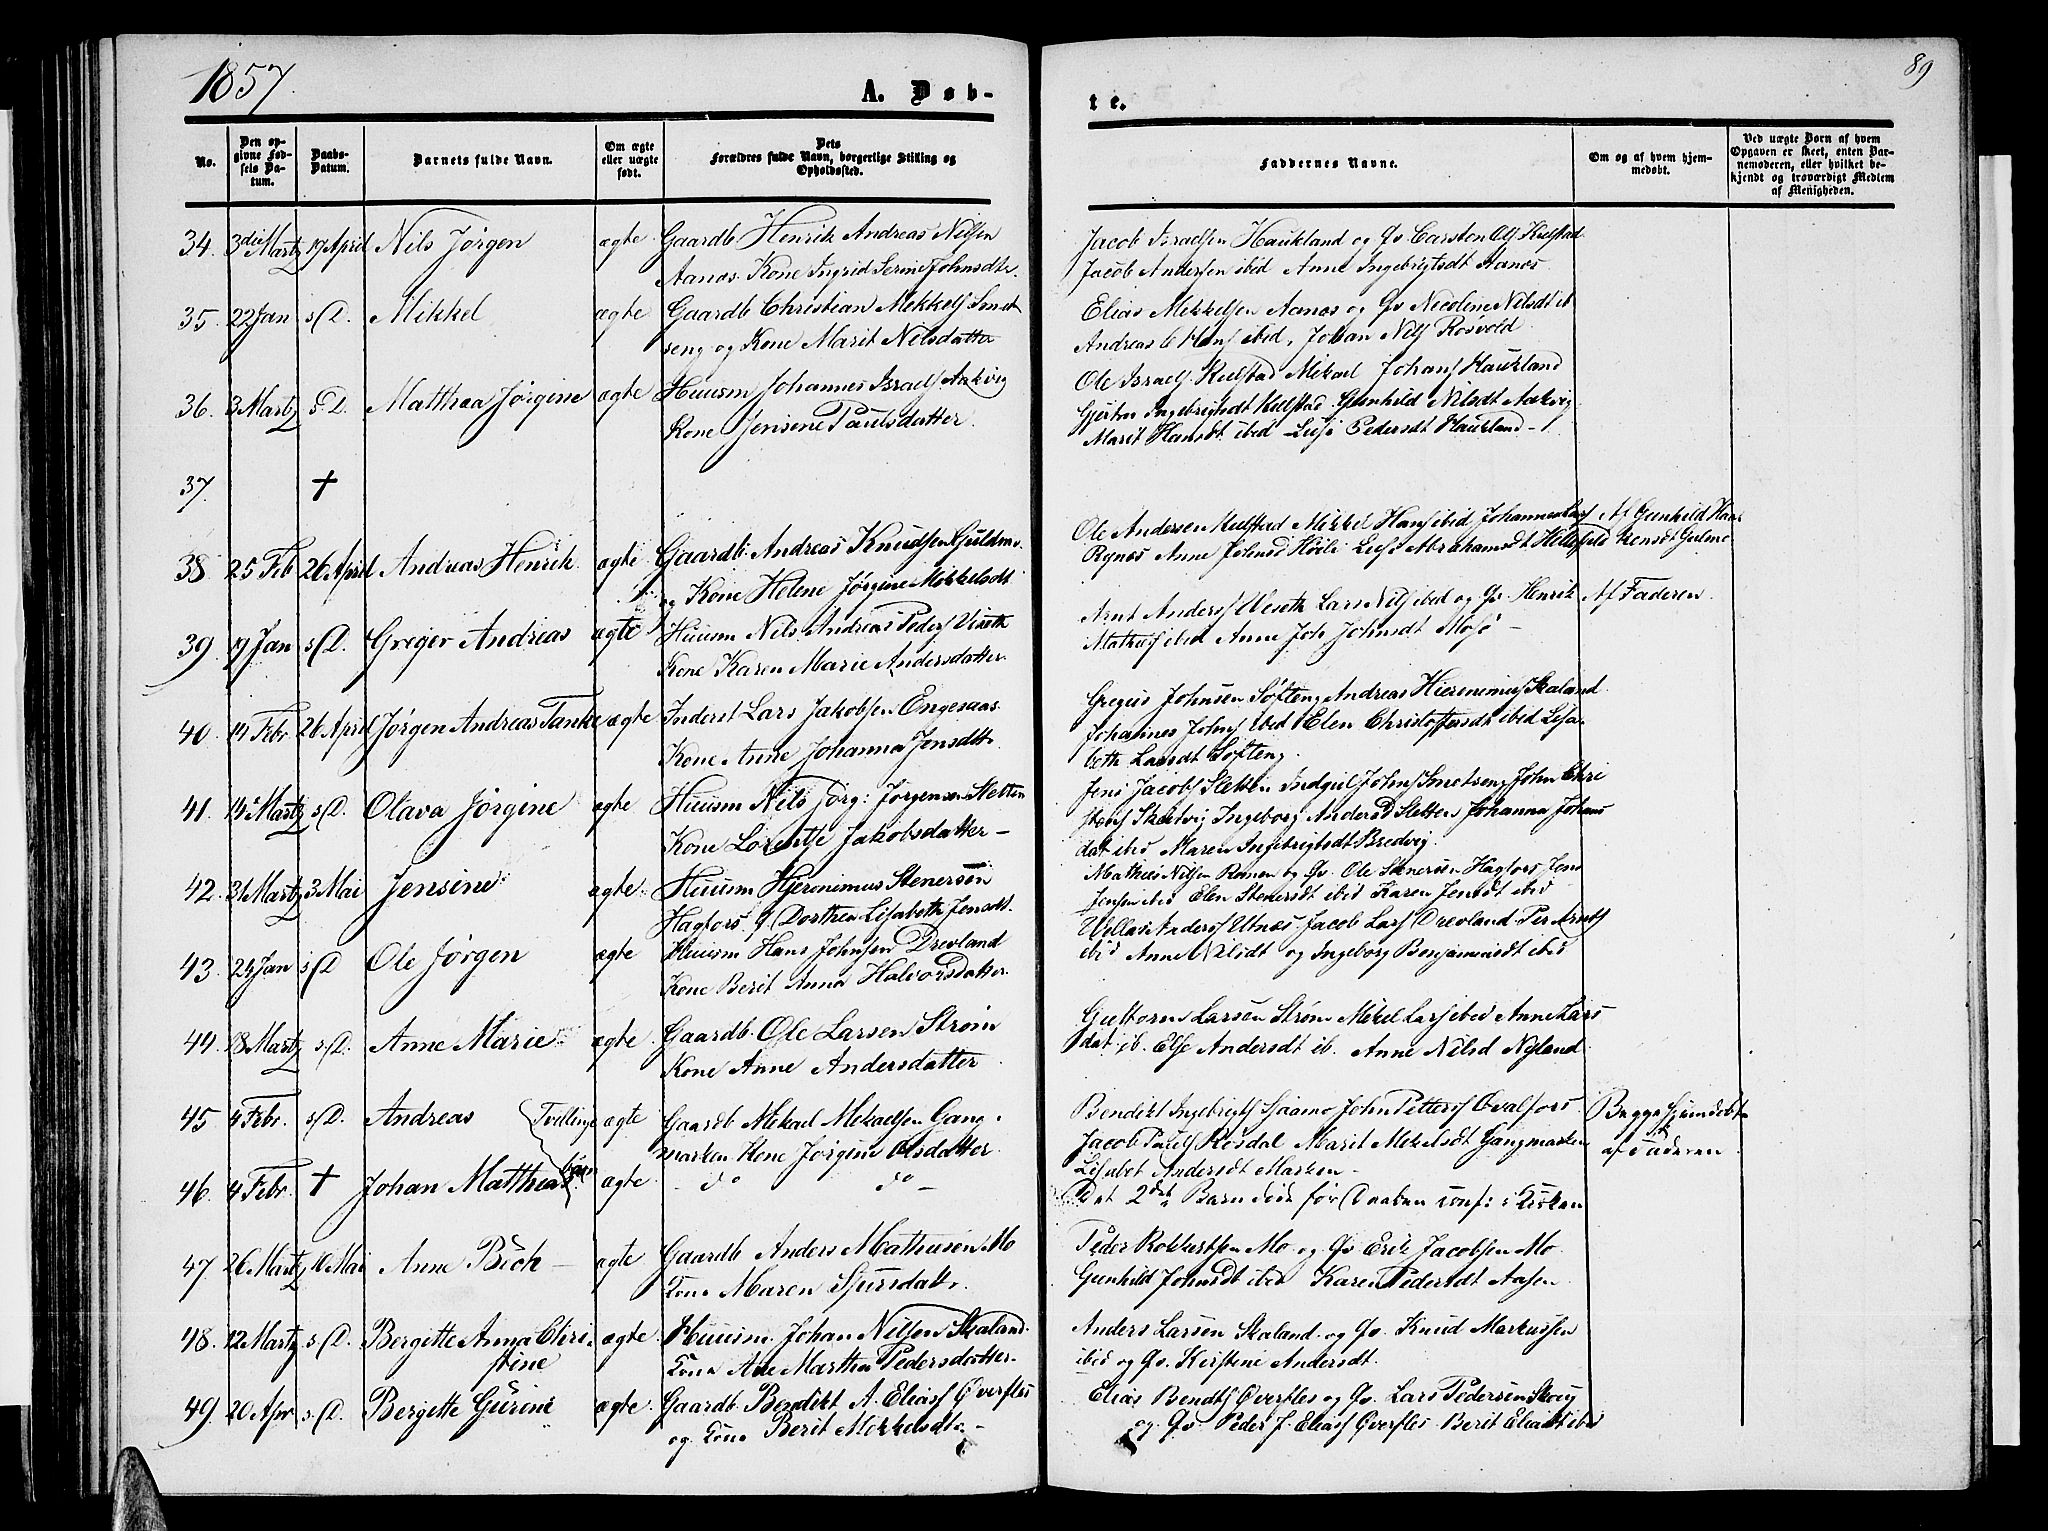 1857
89
A. Døb-
te.
No.
Den op-
givne Fød-
sels Da-
tum.
Daabs-
Datum.
Barnets fulde Navn.
Om ægte
eller uægte
født.
Dets
Forældres fulde Navn, borgerlige Stilling og
Opholdssted.
Faddernes Navne.
Om og af hvem hjem-
medøbt.
Ved uægte Børn af hvem
Opgaven er skeet, enten Bar-
nemoderen, eller hvilket be-
kjendt og troværdigt Medlem
af Menigheden.
34. 3die Martz 19 April Nils Jørgen ægte Gaardb. Henrik Andreas Nilsen
Aanæs. Kone Ingrid Serine Johnsdtr.
Jacob Israelsen Haukland og Gv. Carsten Ols Kulstad
Jacob Andersen ibid Anne Ingebrigtsdt Aanæs
35. 22 Jan s/D. Mikkel ægte Gaardb Christian Mekkels Smet
seng og Kone Marit Nilsdatter
Elias Mekkelsen Aanæs og Gv Nicoline Nilsdt ib
Andreas Hans ibid, Johan Nils Rosvold
36. 3 Martz s.D. Matthea Jørgine ægte Huusm Johannes Israels. Aakvig
Kone Jensine Paulsdatter.
Ole Israels. Kulstad Mikael Johans Haukland
Ingebrigtsdt Kulstad. Gunhild Nilsdt Aakvig
Marit Hansdt ibid Lisi Pedersdt Haukland
37. †
38. 25 Feb 26 April Andreas Henrik ægte Gaardb. Andreas Knudsen
og Kone Helene Jørgine Mikkelsdt
Ole Andersen Kulstad Mikkel Hans ibid Johannes Lars
Rynæs Anne Johnsd Lisi Abrahamsdt
Af Gunhild Haa-
kensdt
39. 19 Jan s/D. Greger Andreas ægte Huusm Nils Andreas Peders
Kone Karen Marie Andersdatter.
Arnt Anders Lars Nils ibid og Gv. Henrik
Mathis ibid Anne Joh Johnsdt
Af Faderen.
40. 14 Febr. 26 April Jørgen Andreas Tanke ægte Inderst Lars Jakobsen Engesaas
Kone Anne Johanna Jensdtr.
Johnsen Søfteng Andreas Hieronimus Skaland
Johannes Johns ibid Elen Christoffersdt ibid Lisa-
beth Larsdt Søfteng.
41. 14 Martz s/D. Olava Jørgine ægte Huusm Nils Jørg: Jørgensen Sletten
Kone Lorentse Jakobsdatter
Jens Jacobs Sletten Johns Smetseng John Chri
Ingeborg Andersd Sletten Johanna Johans
dat ibid Maren Ingebrigtsdt Bredvig.
42. 31 Martz 3 Mai Jensine ægte Huusm Hjeronimus Stenersen
Hagfors. Dorthea Lisabeth Jensdt.
Mathias Nilsen og Gv. Ole Stenersen Hagfors Jens
Jensen ibid Elen Stenersdt ibid Karen Jensdt ibid
43. 24 Jan s/D Ole Jørgen ægte Huusm Hans Johnsen Drevland
Kone Berit Anna Halvorsdatter.
Anders Utnæs. Jacob Lars Drevland. Per Arnts
ibid Anne Nilsdt og Ingeborg Benjaminsdt ibid
44. 18 Martz s/D. Anne Marie ægte Gaardb. Ole Larsen Strøm
Kone Anne Andersdatter
Guttorm Larsen Strøm Mikel Lars ibid Anne Lars
dat ib. Else Andersdt ib. Anne Nilsd Nyland
45 4 Febr. s/D. Andreas Tvillinge ægte Gaardb Mikael Mekaelsen Gang-
marken Kone Jørgine Olsdatter
Bendikt Ingebrigts Sjaamo John Petters Øvalfors
Jacob Pauls Rosdal Marit Mekelsdt Gangmarken
Lisabet Andersdt Marken
Begge hjemdøbt
af Faderen
46. 4 Febr. † Johan Matthias børn ægte do do
Det 2det Barn døde før Daaben conf: i Kirken
47. 26 Martz 10 Mai Anne Bech ægte Gaardb Anders Mathisen Mo
Kone Maren Sjursdatr.
Peder Rokkertsen Mo og Gv. Erik Jacobsen Mo
Gunhild Johnsdt ibid Karen Pedersdt Aasen
48. 12 Martz s/D. Bergitte Anna Chri-
stine
ægte Huusm. Johan Nilsen Skaland.
Kone Ane Martha Pedersdatter.
Anders Larsen Skaland og Gv. Knud Markussen
ibid og Gv. Kirstene Andersdt.
49. 20 Apr s.D. Bergette Gurine ægte Gaardb. Bendikt A. Elias Øverfles
og Kone Berit Mekkelsdtr.
Elias Bendts Øverfles og Gv. Lars Pedersen
og Gv. Peder J. Elias Øverfles Berit Eliasdt ibid